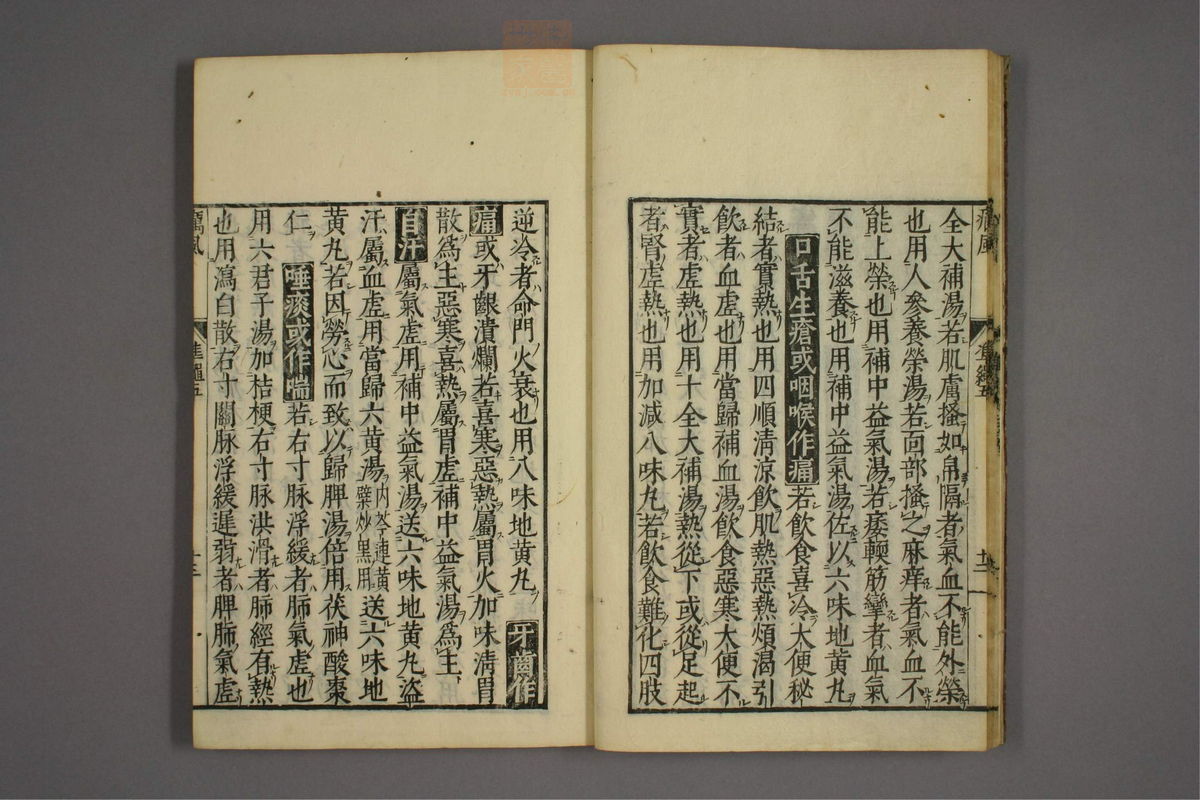 癘風
準繩五
十二
全大補湯若肌膚搔如帛隔者氣血不能外榮
也用人參養榮湯若面部搔之麻痒者氣血不
能上榮也用補中益氣湯若痿輭筋攣者血氣
不能滋養也用補中益氣湯佐以六味地黄丸
口舌生瘡或咽喉作痛若飲食喜冷大便秘
結者實熱也用四順清涼飲肌熱惡熱煩渴引
飲者血虛也用當歸補血湯飲食惡寒大便不
實者虛熱也用十全大補湯熱從下或從足起
者腎虛熱也用加減八味丸若飲食難化四肢
逆冷者命門火衰也用八味地黄丸 牙齒作
痛或牙齦潰爛若喜寒惡熱屬胃火加味清胃
散爲主惡寒喜熱屬胃虛補中益氣湯爲主
自汗屬氣虛用補中益氣湯送六味地黄丸盜
汗屬血虛用當歸六黄湯内芩連黄蘗炒黒用送六味地
黄丸若因勞心而致以歸脾湯倍用茯神酸棗
仁 唾痰或作喘若右寸脉浮緩者肺氣虛也
用六君子湯加桔梗右寸脉洪滑者肺經有熱
也用瀉白散右寸關脉浮緩遲弱者脾肺氣虛
癘風
準繩五
十三